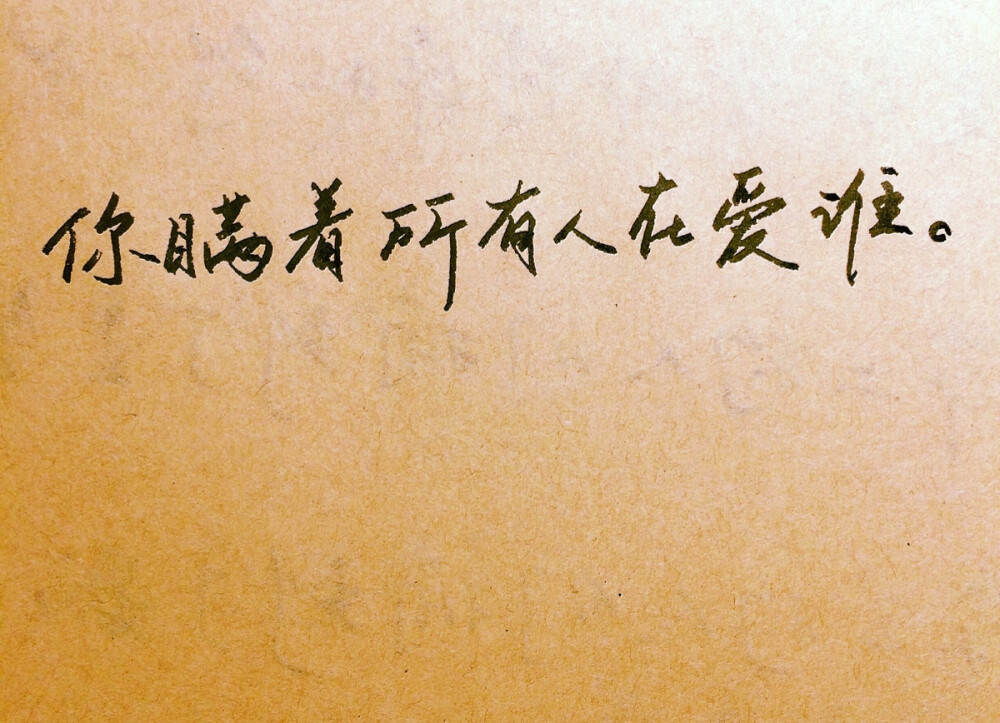 你瞒着所有人在爱谁。